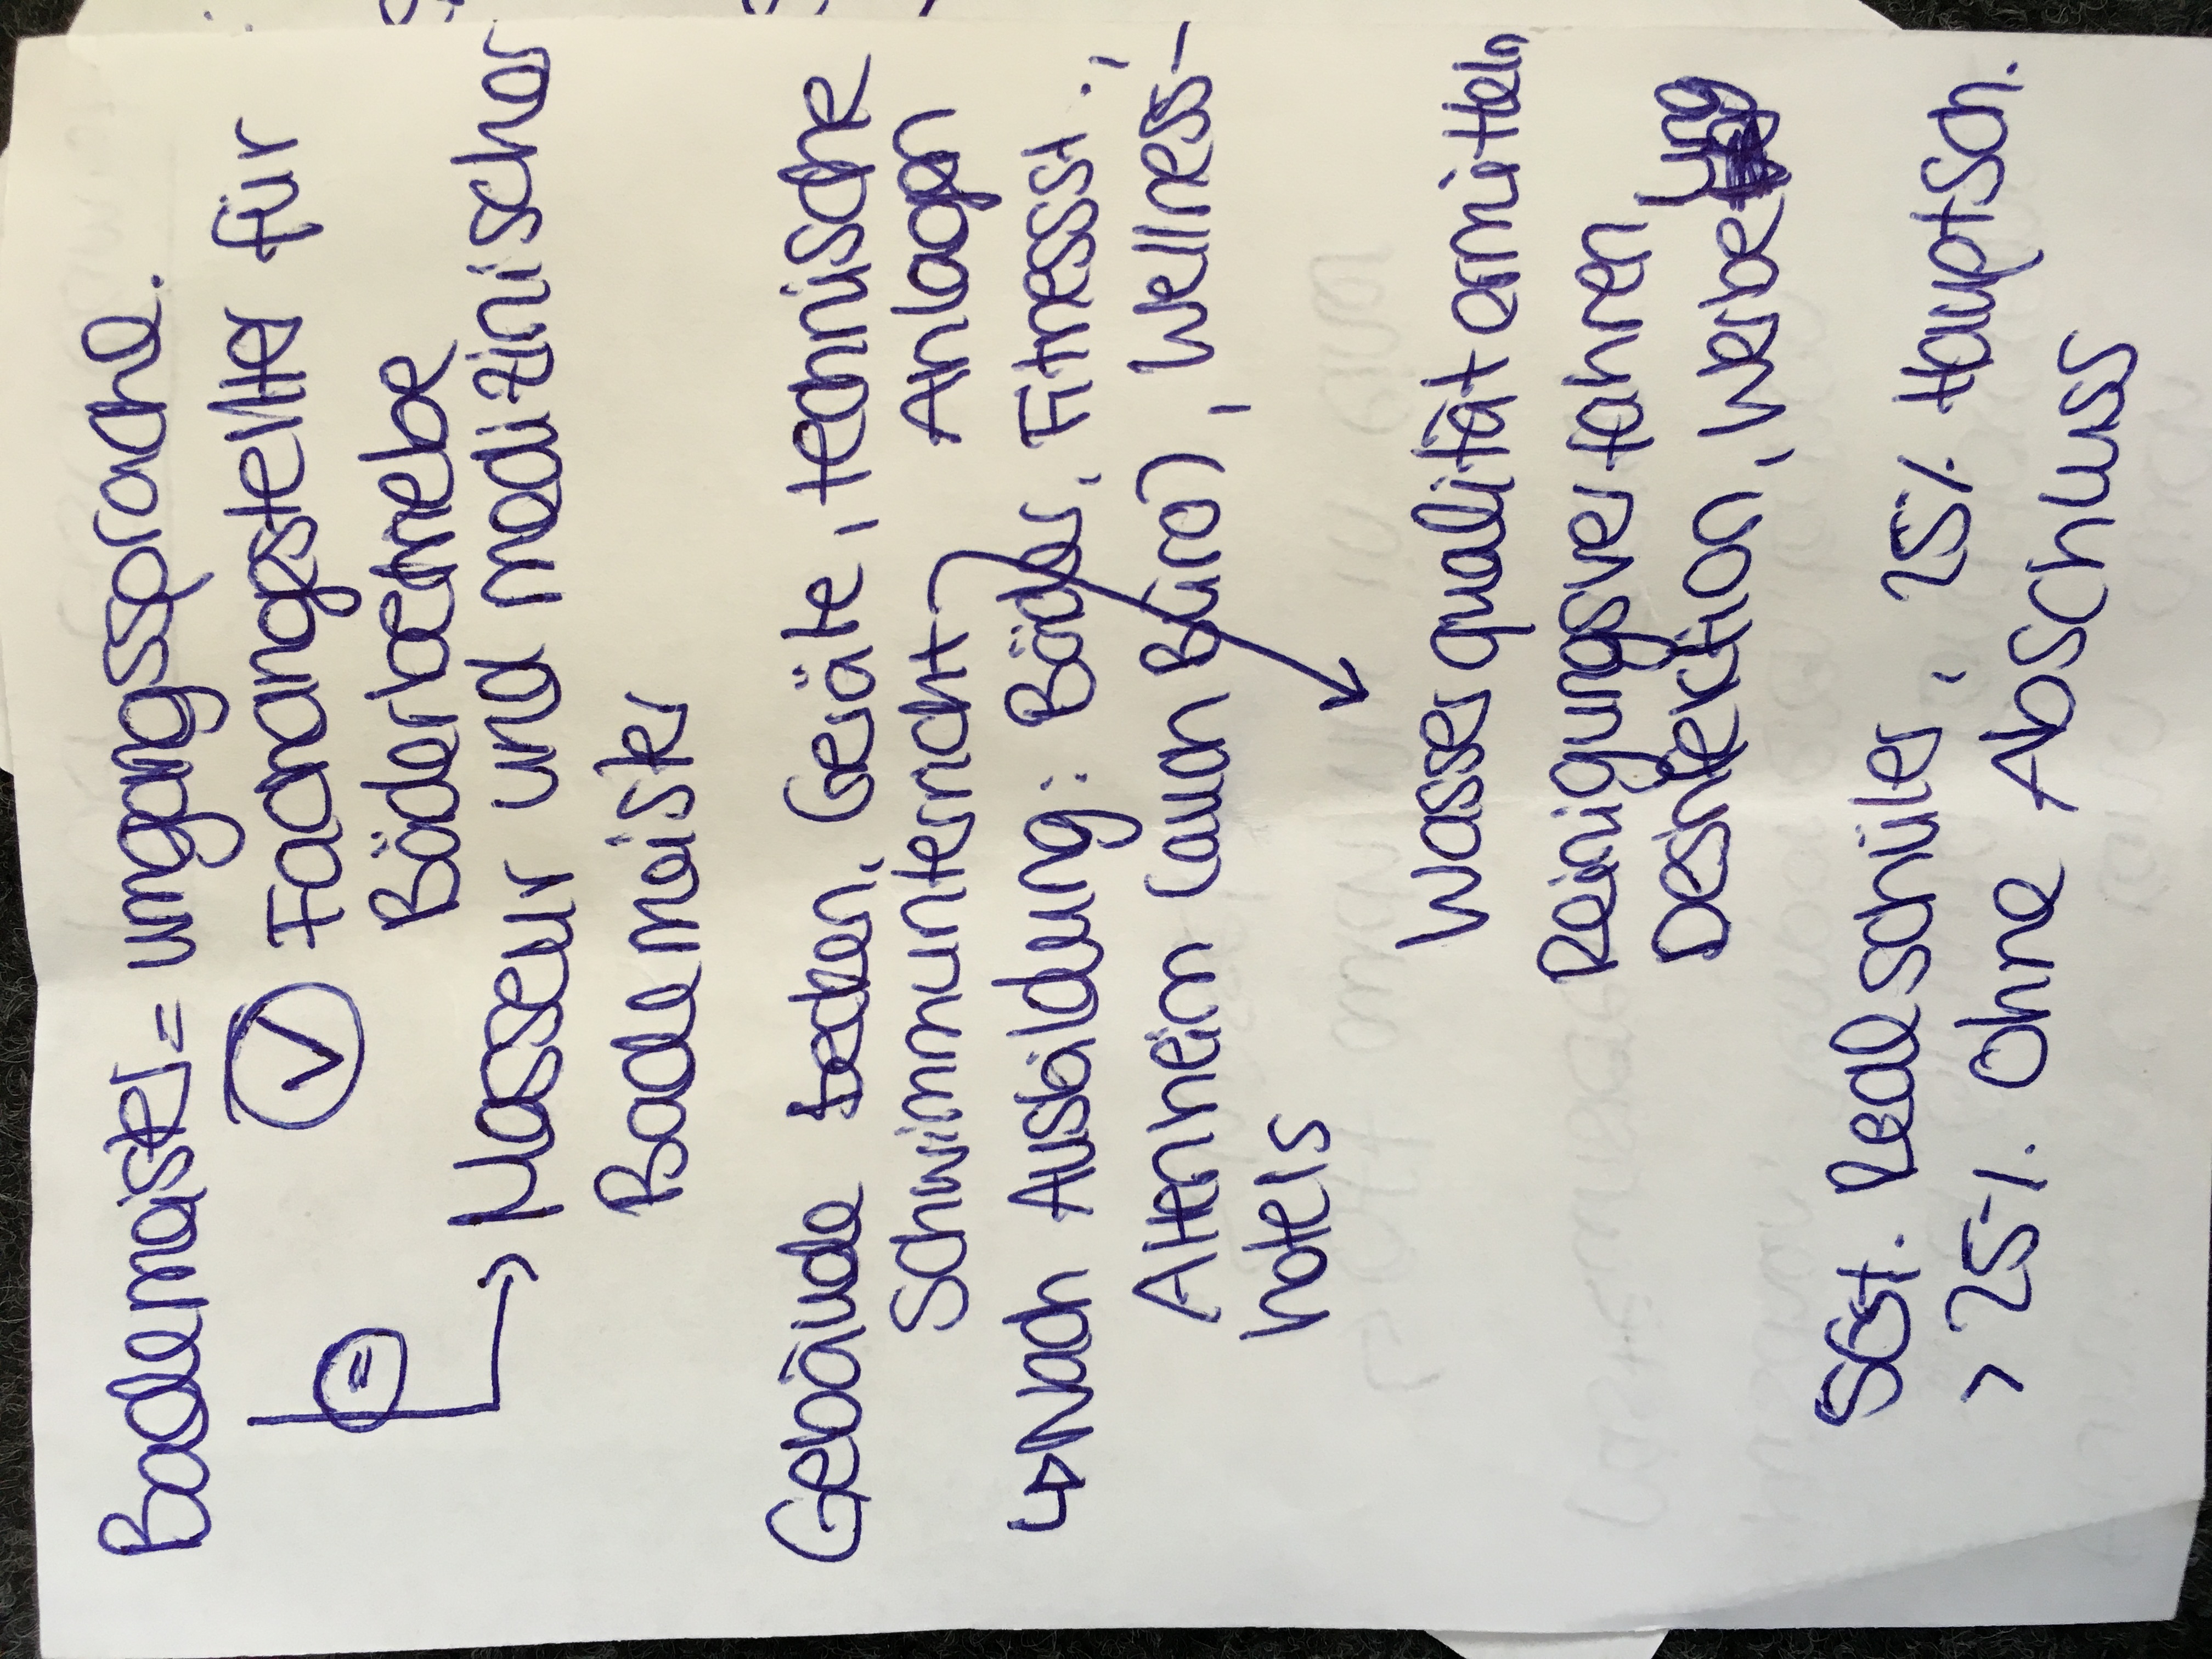 Bademeister = umgangssprache.
Fachangestellter für
Bäderbetriebe
=
→ Masseur und medizinischer
Bademeister
Gebäude Becken, Geräte, technische
Schwimmunterricht Anlagen
↳ Nach Ausbildung: Bäder, Fitnessst.,
Altenheim (auch Büro), Wellness-
hotels
Wasserqualität ermitteln
Reinigungsverfahren,
Desinfektion, Werbung
Realschüler, 25% Hauptsch.
> 25%. Ohne Abschluss